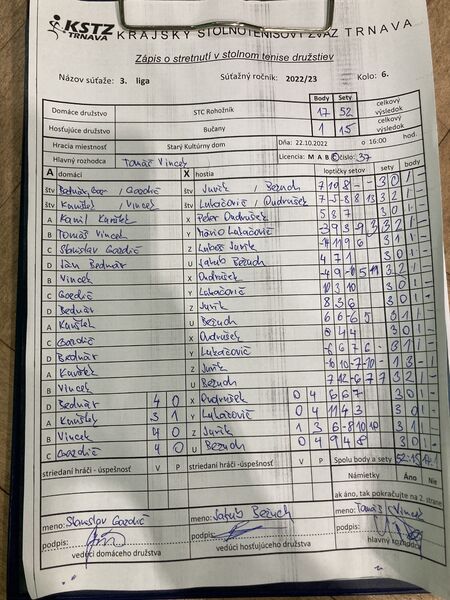 KSTZ TRNAVA KRAJSKÝ STOLNOTENISOVÝ ZVÄZ TRNAVA
Zápis o stretnutí v stolnom tenise družstiev
Názov súťaže: 3. liga Súťažný ročník: 2022/23 Kolo: 6.
Body Sety celkový výsledok
Domáce družstvo STC Rohožník 17 52
Hosťujúce družstvo Bučany 1 15 celkový výsledok
Hracia miestnosť Starý Kultúrny dom Dňa: 22.10.2022 o 16:00 hod.
Hlavný rozhodca Tomáš Vincek Licencia: M A B C číslo: 37
A domáci X hostia loptičky setov sety body
štv Bednár, Gazdič štv Jurík, Bezuch 7 10 8 - - 3 0 1 -
štv Kunštek, Vincek štv Lukačovič, Ondrušek 7 -5 8 -8 13 3 2 1 -
A Kamil Kunštek X Peter Ondrušek 5 8 7 3 0 1 -
B Tomáš Vincek Y Mário Lukačovič 3 2 1 -
C Stanislav Gazdič Z Luboš Jurík 3 1 1 -
D Ján Bednár U Jakub Bezuch 4 7 1 3 0 1 -
B Vincek X Ondrušek 3 2 1 -
C Gazdič Y Lukačovič 10 3 10 3 0 1 -
D Bednár Z Jurík 8 3 6 3 0 1 -
A Kunštek U Bezuch 3 1 1 -
C Gazdič X Ondrušek 3 0 1 -
D Bednár Y Lukačovič 3 1 1 -
A Kunštek Z Jurík 1 3 - 1
B Vincek U Bezuch 3 2 1 -
D Bednár 4 0 X Ondrušek 0 4 6 6 7 3 0 1 -
A Kunštek 3 1 Y Lukačovič 0 4 11 4 3 3 0 1 -
B Vincek 4 0 Z Jurík 1 3 6 -8 10 10 3 1 1 -
C Gazdič 4 0 U Bezuch 0 4 9 4 8 3 0 1 -
striedaní hráči - úspešnosť V P striedaní hráči - úspešnosť V P Spolu body a sety 52:15 17:1
Námietky Áno Nie
ak áno, tak pokračujte na 2. strane
meno: Stanislav Gazdič meno: Jakub Bezuch meno: Tomáš Vincek
podpis: podpis: podpis:
vedúci domáceho družstva vedúci hosťujúceho družstva hlavný rozhodca